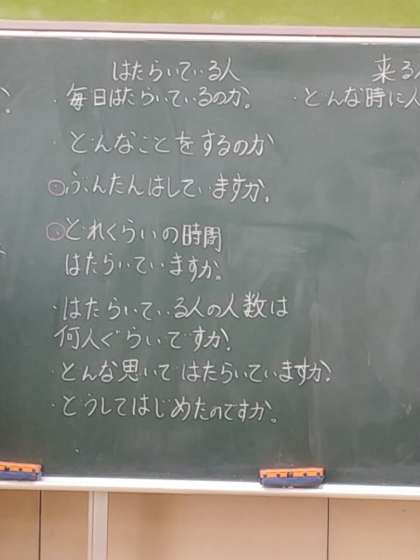 はたらいている人
・毎日はたらいているのか。
・どんなことをするのか
・ぶんたんはしていますか。
・どれくらいの時間
はたらいていますか。
・はたらいている人の人数は
何人ぐらいですか?
・どんな思いではたらいていますか?
・どうしてはじめたのですか。
来る
・どんな時に人